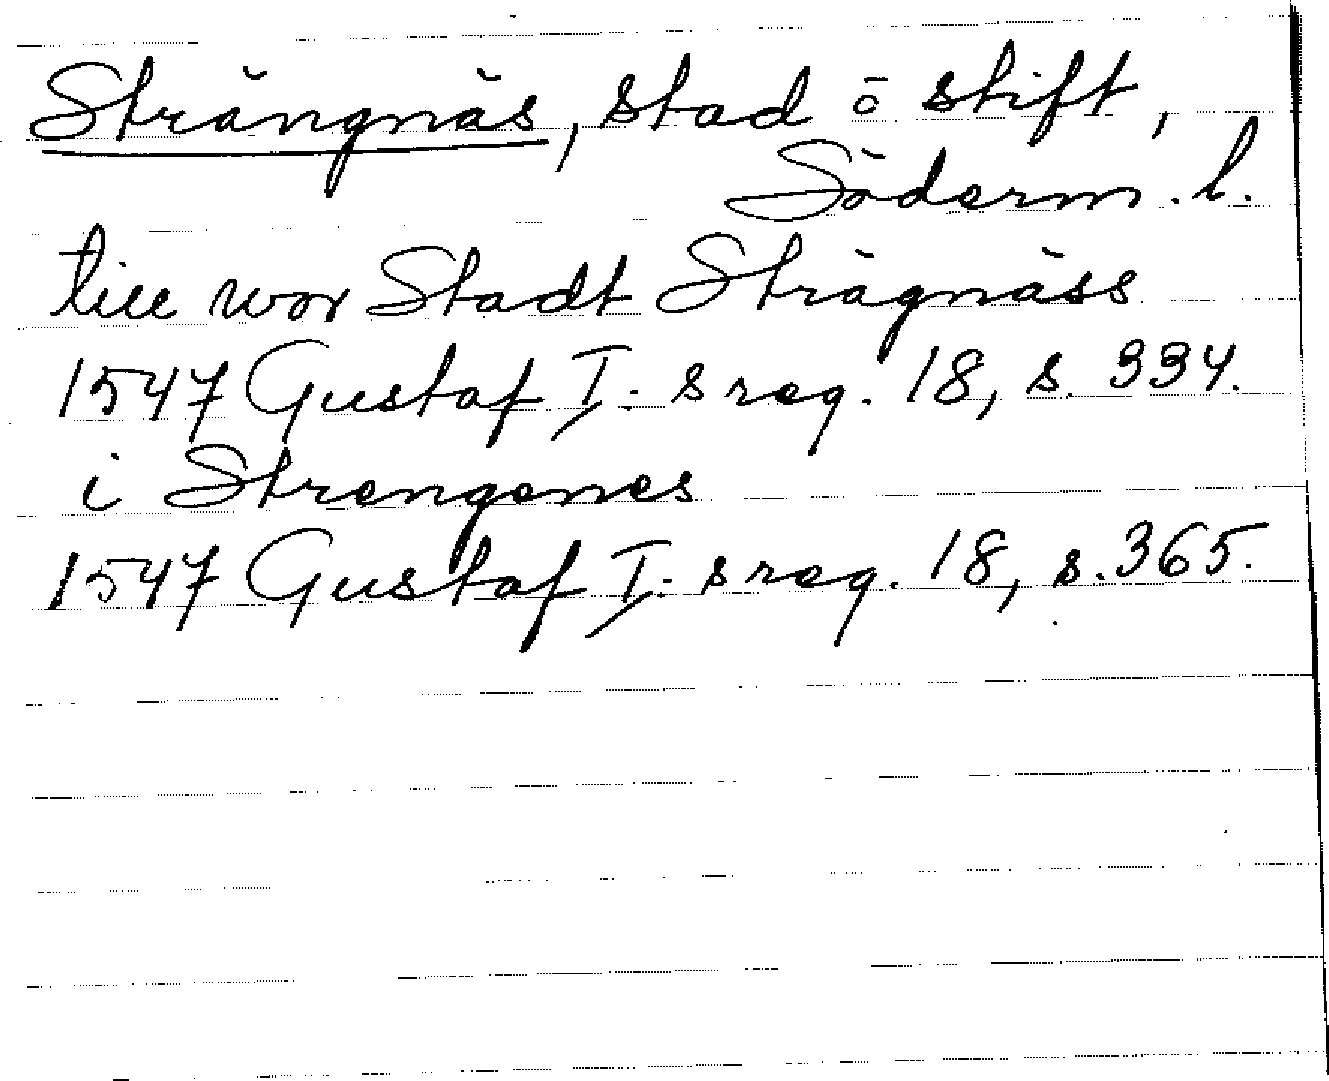 Strängnäs, stad o stift,
Söderm. l.
till wor Stadt Strägnäss
1547 Gustaf I:s reg. 18, s. 334.
i Strengenes
1547 Gustaf I:s reg. 18, s. 365.